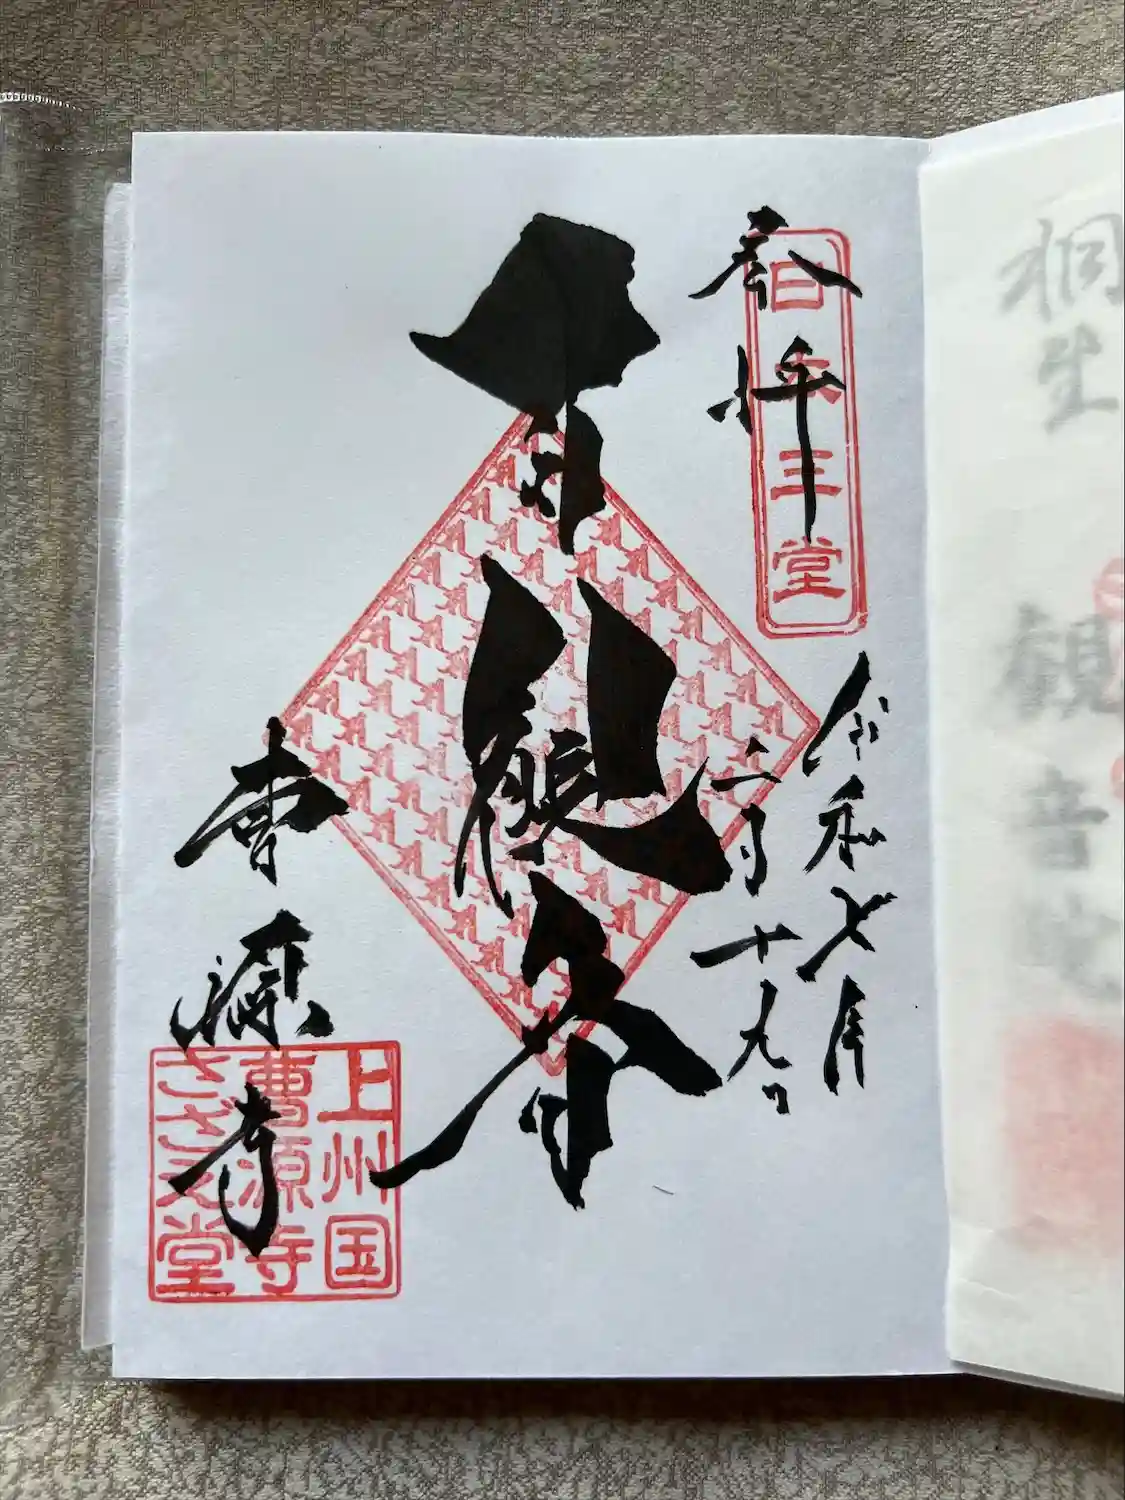 奉拝
日本三堂
令和七年
二月十九日
百観音
曹源寺
上州国
曹源寺
さざえ堂
桐生
観音